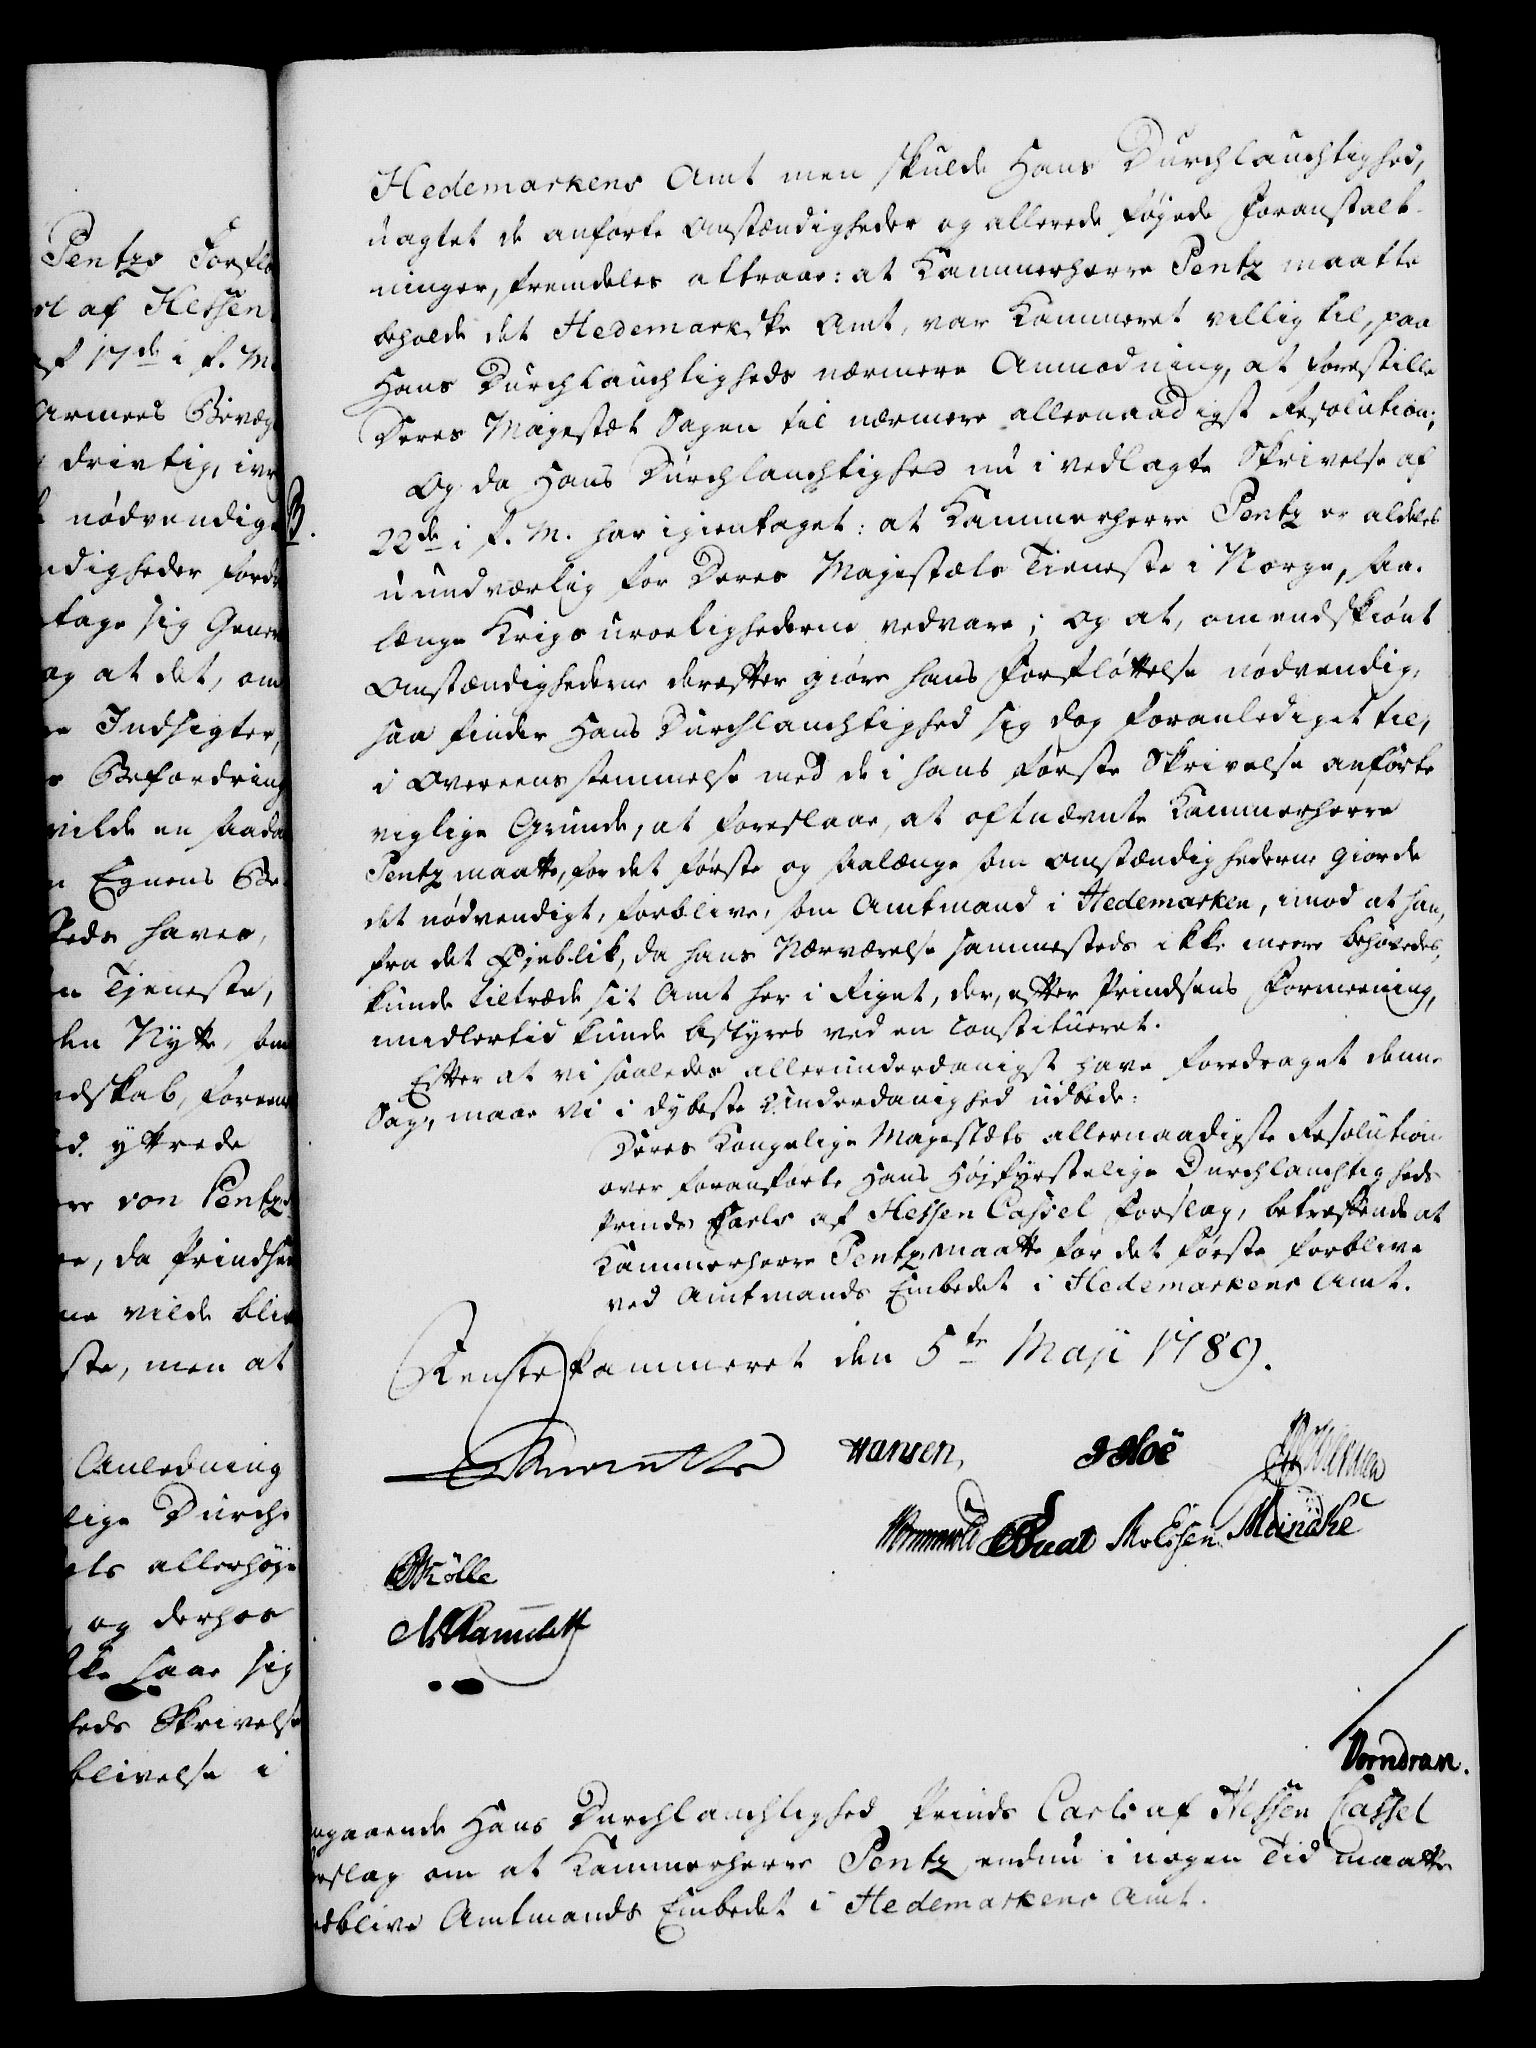 Pentzs Forflø
rl af Hessen
af 17de i f. M.
Armees Bevæg
drivtig, ivr
nødvendige
ndigheder forde
tage sig Gener
og at det, om
Indsigter,
Befordring
vilde en saada
n Egnens Be
steds haves,
n Tjeneste,
den Nytte, som
ndskab, foreene
ed. yttrede
re von Pentz
re, da Prindsen
ne vilde bliv
ste, men at
Anledning
lige Durch-
els allerhøje
og derhos
kke saae sig
heds Skrivelse
blivelse i
Hedemarkens Amt men skulde Hans Durchlauchtighed,
uagtet de anførte Omstændigheder og allerede føjede Foranstalt-
ninger, fremdeles attraae: at Kammerherre Pentz maatte
beholde det Hedemarkske Amt, var Kammeret villig til, paa
Hans Durchlauchtigheds nærmere Anmodning, at forestille
Deres Majestæt Sagen til nærmere allernaadigst Resolution;
Og da Hans Durchlauchtighed nu i vedlagte Skrivelse af
B.
22de i f. M. har igientaget: at Kammerherre Pentz er aldeles
uundværlig for Deres Majestæts Tieneste i Norge, saa-
længe Krigs uroelighederne vedvare; og at, omendskiønt
Omstændighederne derefter giøre hans Forfløttelse nødvendig,
saa finder Hans Durchlauchtighed sig dog foranlediget til,
i Overeensstemmelse med de i hans første Skrivelse anførte
vigtige Grunde, at foreslaae, at oftnævnte Kammerherre
Pentz maatte, for det første og saalænge som Omstændighederne giorde
det nødvendigt, forblive, som Amtmand i Hedemarken, imod at han,
fra det Øjeblik, da hans Nærværelse sammesteds ikke meere behøvedes,
kunde tiltræde sit Amt her i Riget, der, efter Prindsens Formeening,
imidlertid kunde bestyres ved en Constitueret.
Efter at vi saaledes allerunderdanigst have foredraget denne
Sag, maae vi i dybeste Underdanighed udbede:
Deres Kongelige Majestæts allernaadigste Resolution
over foranførte Hans Højfyrstelige Durchlauchtigheds
Prinds Carls af Hessen Cassel Forslag, betreffende at
Kammerherre Pentz maatte for det første forblive
ved Amtmands Embedet i Hedemarkens Amt.
Rentekammeret den 5te Maji 1789.
Hansen,
Hoë
Wormwold Buat Molssen Meincke
Mölle
N Ramclett
Vorndran.
ngaaende Hans Durchlauchtighed Prinds Carls af Hessen Cassel
orslag om at Kammerherre Pentz endnu i nogen Tid maatte
edblive Amtmands Embedet i Hedemarkens Amt.